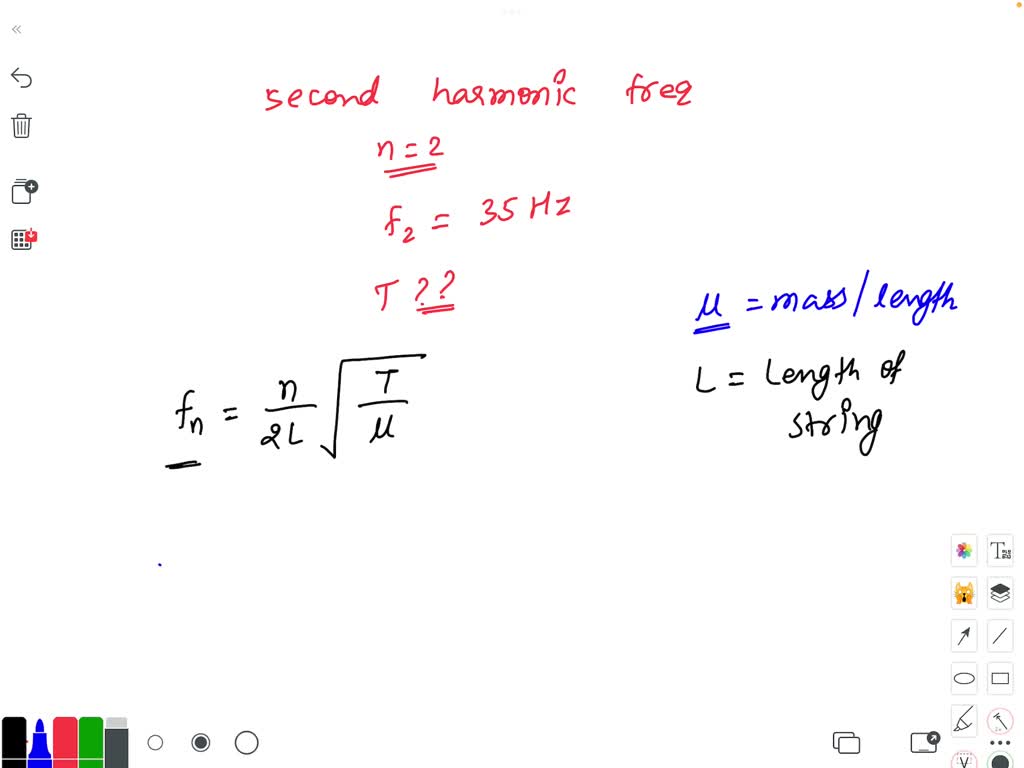 second harmonic freq
n = 2
f₂ = 35 Hz
T ??
μ = mass/length
fₙ = n/2L √(T/μ)
L = Length of
string